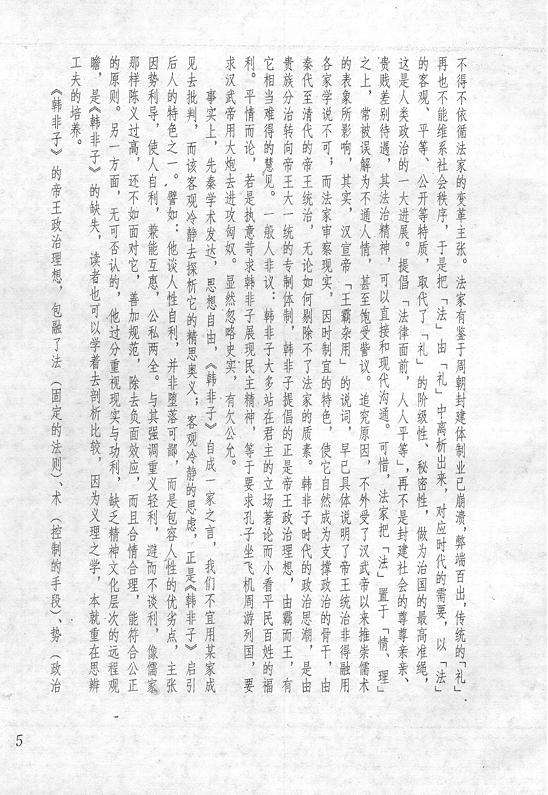 不得不依循法家的变革主张。法家有鉴于周朝封建体制业已崩溃,弊端百出,传统的「礼」
再也不能维系社会秩序,于是把「法」由「礼」中离析出来,对应时代的需要,以「法」
的客观、平等、公开等特质,取代了「礼」的阶级性、秘密性,做为治国的最高准绳,
这是人类政治的一大进展。提倡「法律面前,人人平等」,再不是封建社会的尊尊亲亲、
贵贱差别待遇,其法治精神,可以直接和现代沟通。可惜,法家把「法」置于「情、理」
之上,常被误解为不通人情,甚至饱受訾议。追究原因,不外受了汉武帝以来推崇儒术
的表象所影响,其实,汉宣帝「王霸杂用」的说词,早已具体说明了帝王统治非得融用
各家学说不可;而法家审察现实,因时制宜的特色,使它自然成为支撑政治的骨干,由
秦代至清代的帝王统治,无论如何剔除不了法家的质素。韩非子时代的政治思潮,是由
贵族分治转向帝王大一统的专制体制,韩非子提倡的正是帝王政治理想,由霸而王,有
它相当难得的慧见。一般人非议:韩非子大多站在君主的立场著论而小看平民百姓的福
利。平情而论,若是执意苛求韩非子展现民主精神,等于要求孔子坐飞机周游列国,要
求汉武帝用大炮去进攻匈奴。显然忽略史实,有欠公允。
事实上,先秦学术发达,思想自由,《韩非子》自成一家之言,我们不宜用某家成
见去批判,而该客观冷静去探析它的精思奥义;客观冷静的思虑,正是《韩非子》启引
后人的特色之一。譬如:他谈人性自利,并非堕落可鄙,而是包容人性的优劣点,主张
因势利导,使人自利,兼能互惠,公私两全。与其强调重义轻利,避而不谈利,像儒家
那样陈义过高,还不如面对它,善加规范,除去负面效应,而且合情合理,能符合公正
的原则。另一方面,无可否认的,他过分重视现实与功利,缺乏精神文化层次的远程观
瞻,是《韩非子》的缺失,读者也可以学着去剖析比较,因为义理之学,本就重在思辨
工夫的培养。
《韩非子》的帝王政治理想,包融了法(固定的法则)、术(控制的手段)、势(政治
5